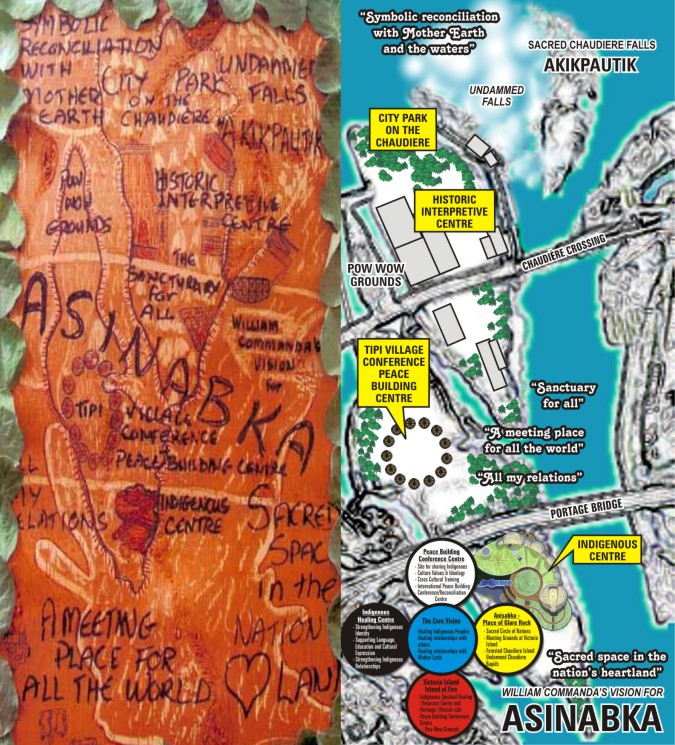 SYMBOLIC
RECONCILIATION
WITH
MOTHER
EARTH
CITY PARK
ON THE
CHAUDIERE
UNDAMMED
FALLS
AKIKPAUTIK
POW
WOW
GROUNDS
HISTORIC
INTERPRETIVE
CENTRE
THE
SANCTUARY
FOR
ALL
ASINABKA
WILLIAM
COMMANDA'S
VISION
FOR
TIPI VILLAGE
CONFERENCE
PEACE BUILDING CENTRE
RELATIONS
INDIGENOUS
CENTRE
SACRED
SPAC
in the
NATION
A MEETING
ALL THE WORLD
"Symbolic reconciliation
with Mother Earth
and the waters"
SACRED CHAUDIERE FALLS
AKIKPAUTIK
UNDAMMED
FALLS
CITY PARK
ON THE
CHAUDIERE
HISTORIC
INTERPRETIVE
CENTRE
CHAUDIERE CROSSING
POW WOW
GROUNDS
TIPI VILLAGE
CONFERENCE
PEACE
BUILDING
CENTRE
"Sanctuary
for all"
"A meeting place
for all the world"
"All my relations"
PORTAGE BRIDGE
INDIGENOUS
CENTRE
Peace Building
Conference Centre
- Site for sharing Indigenous
- Culture Values & Ideology
- Cross Cultural Training
- International Peace Building
Conference/Reconciliation
Centre
Indigenous
Healing Centre
- Strengthening Indigenous
Identity
- Supporting Language,
Education and Cultural
Expression
- Strengthening Indigenous
Relationships
The Core Vision
- Healing Indigenous Peoples
- Healing relationships with
others
- Healing relationships with
Mother Earth
Asinabka -
Place of Glare Rock
- Sacred Circle of Nations
- Meeting Grounds at Victoria
Island
- Forested Chaudiere Island
Undammed Chaudiere
Rapids
Victoria Island
Island of Fire
- Indigenous Spiritual Healing
/ Resource Centre and
Heritage / Historic site
- Peace Building Conference
Centre
- Pow Wow Grounds
"Sacred space in the
nation's heartland"
WILLIAM COMMANDA'S VISION FOR
ASINABKA